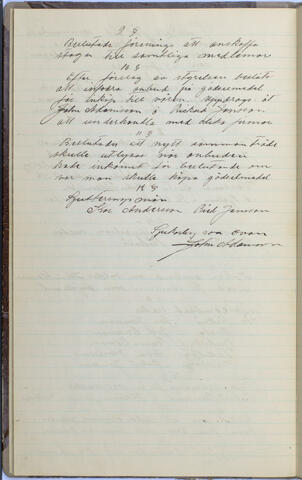 9 §
Beslutade förenings att anskaffa
stagar till samtliga medlemar
10 §
Efter förslag av styrelsen beslöts
att infodra anbud på gödselmedel
för inköp till våren. uppdrogs åt
John Adamsson
att underhandla med olika firmor
11 §
Beslutades att nytt sammanträde
skulle utlysas när anbuden
hade inkomit för beslutande om
var man skulle köpa gödselmedel
12 §
Justeringsmän
Andersson Jansson
som ovan
John Adamsson